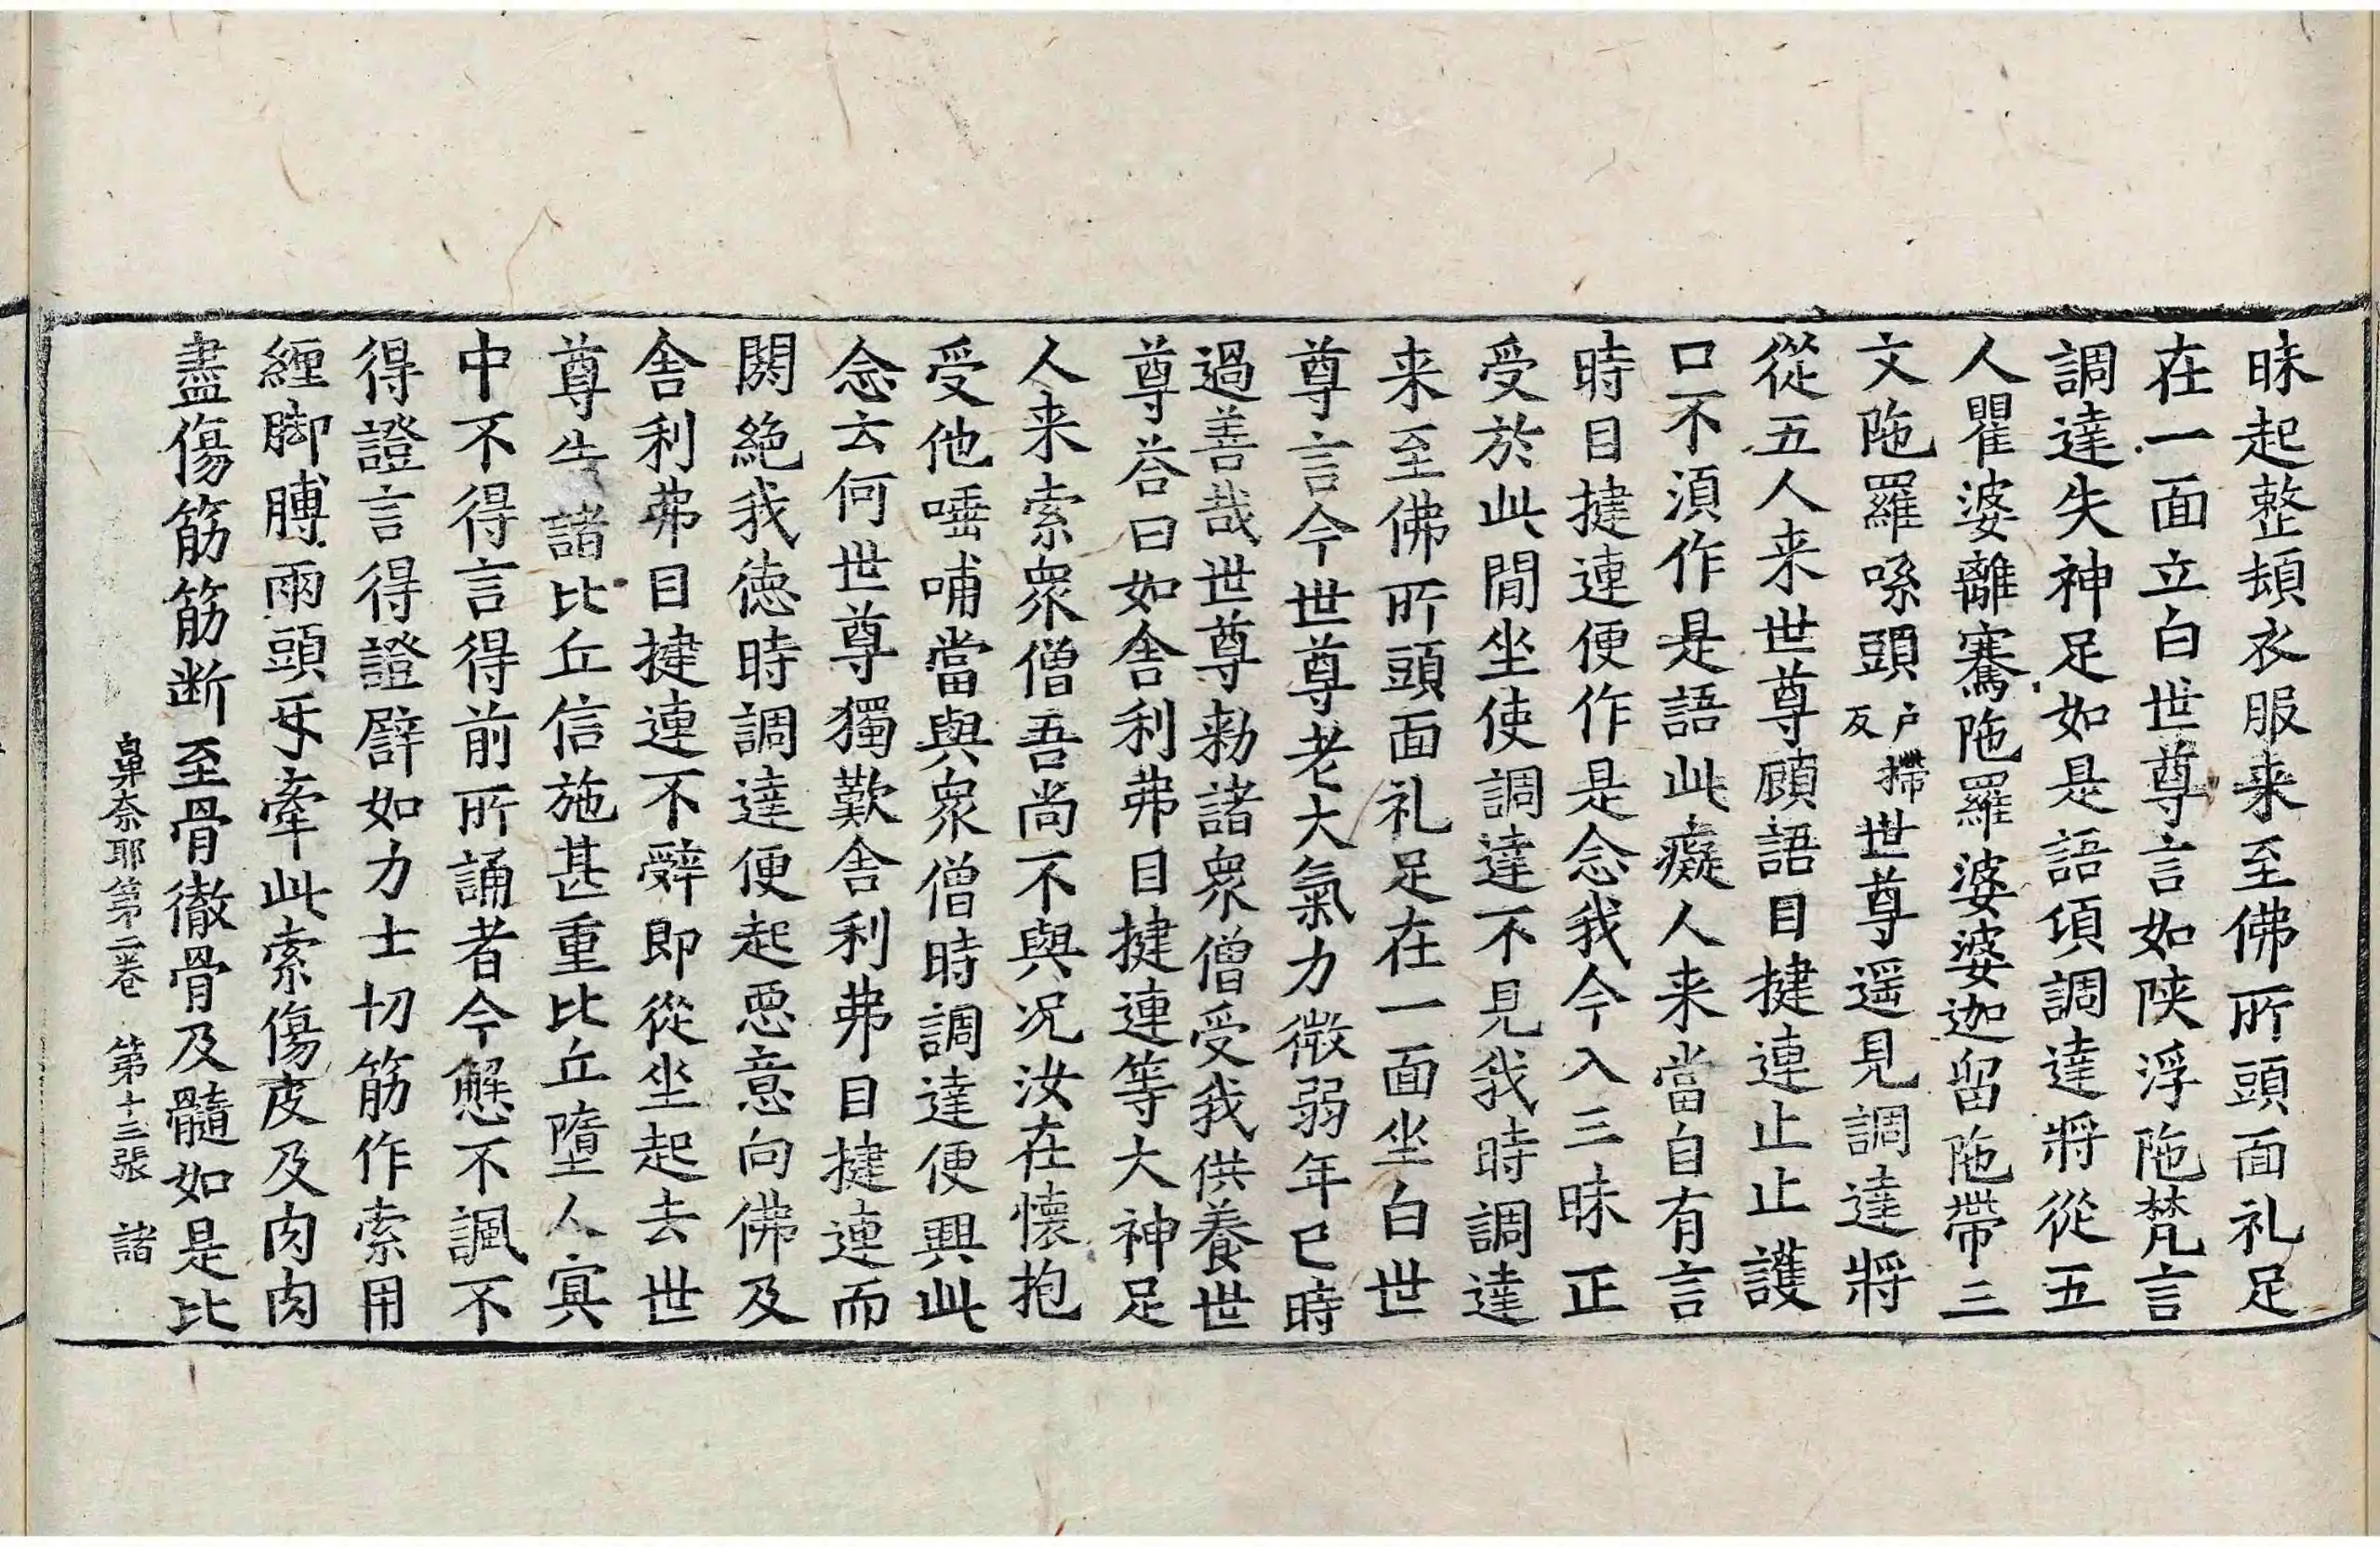 昧起整頓衣服来至佛所頭面礼足
在一面立白世尊言如陝浮陁梵言
調達失神足如是語頃調達將從五
人瞿婆離騫陁羅婆婆迦留陁帶三
文陁羅㗫頭户搱反世尊遥見調達將
從五人来世尊顧語目揵連止止護
口不湏作是語此癡人来當自有言
時目揵連便作是念我今入三昧正
受於此閒坐使調達不見我時調達
来至佛所頭面礼足在一面坐白世
尊言今世尊老大氣力微弱年已時
過善哉世尊勑諸衆僧受我供養世
尊荅曰如舎利弗目揵連等大神足
人来索衆僧吾尚不與况汝在懐抱
受他唾哺當與衆僧時調達便興此
念云何世尊獨歎舎利弗目揵連而
閼絶我徳時調達便起悪意向佛及
舎利弗目揵連不辤即從坐起去世
尊告諸比丘信施甚重比丘墮人冥
中不得言得前所誦者今懸不諷不
得證言得證譬如力士切筋作索用
纒脚膊兩頭牙牽此索傷皮及肉肉
盡傷筋筋断至骨徹骨及髓如是比
鼻奈耶第二卷 第十三張 諸